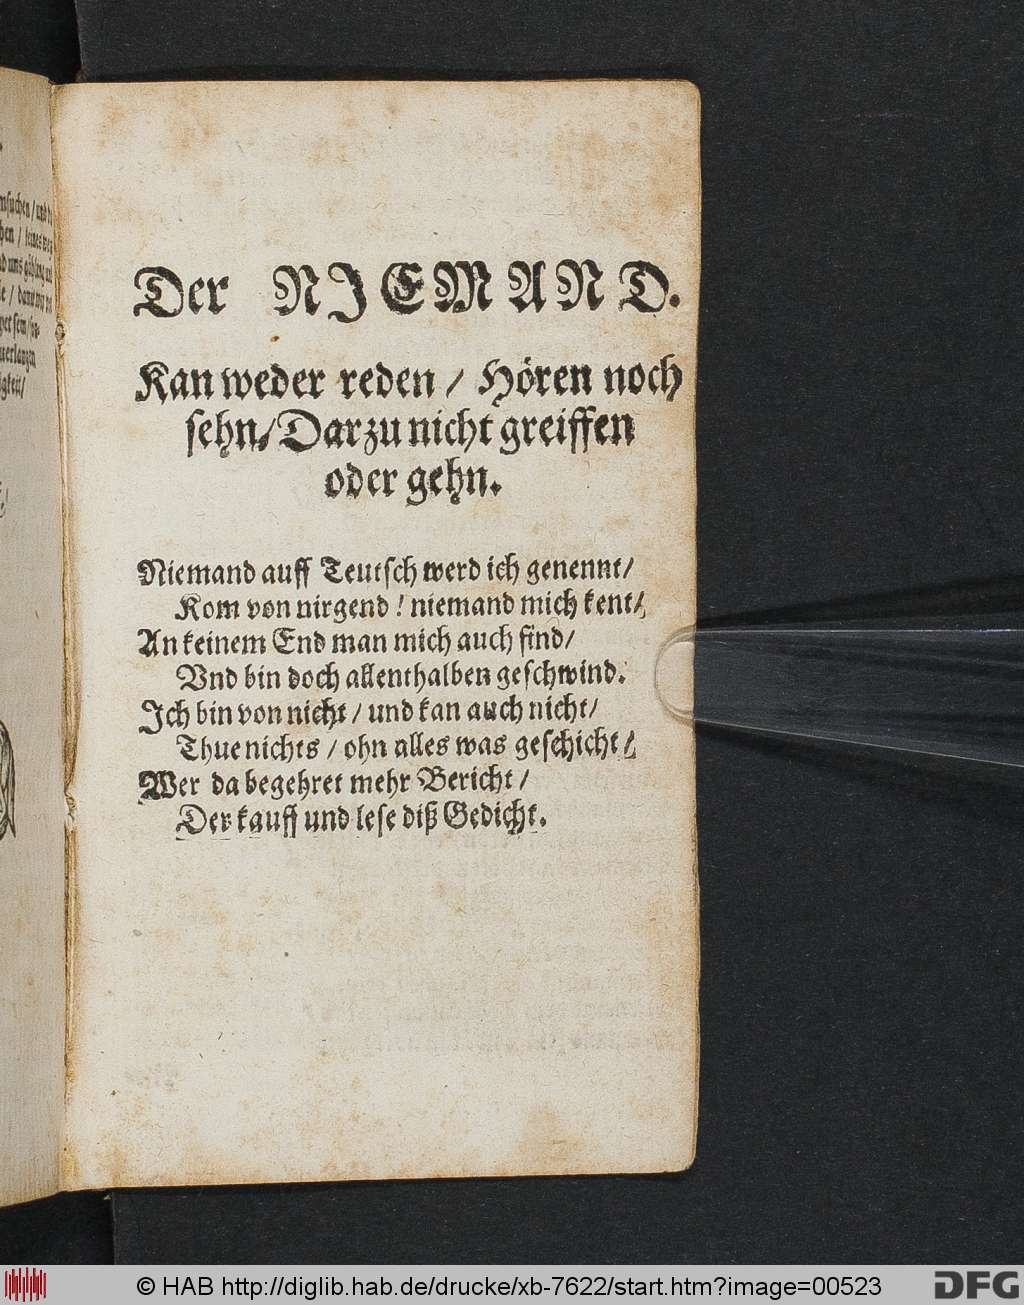 Der NIEMAND.
Kan weder reden / Hören noch
sehn / Darzu nicht greiffen
oder gehn.
Niemand auff Teutsch werd ich genennt /
Kom von nirgend ! niemand mich kent /
An keinem End man mich auch find /
Vnd bin doch allenthalben geschwind.
Ich bin von nicht / und kan auch nicht /
Thue nichts / ohn alles was geschicht /
Wer da begehret mehr Bericht /
Der kauff und lese diß Gedicht.
© HAB http://diglib.hab.de/drucke/xb-7622/start.htm?image=00523
DFG